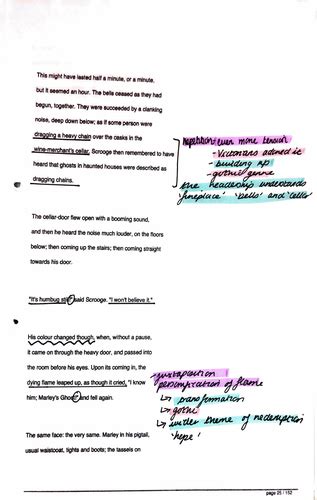 This might have lasted half a minute, or a minute,
but it seemed an hour. The bells ceased as they had
begun, together. They were succeeded by a clanking
noise, deep down below; as if some person were
dragging a heavy chain over the casks in the
wine-merchant's cellar. Scrooge then remembered to have
heard that ghosts in haunted houses were described as
dragging chains.
repetition: even more tension
- Victorians adored it
- building up
- gothic genre
the readership understands
'fireplace' 'bells' and 'cellar'
The cellar-door flew open with a booming sound,
and then he heard the noise much louder, on the floors
below; then coming up the stairs; then coming straight
towards his door.
"It's humbug still!" said Scrooge. "I won't believe it."
His colour changed though, when, without a pause,
it came on through the heavy door, and passed into
the room before his eyes. Upon its coming in, the
dying flame leaped up, as though it cried, "I know
him; Marley's Ghost!" and fell again.
juxtaposition
personification of flame
↳ transformation
↳ gothic
↳ wider theme of redemption
'hope'
The same face: the very same. Marley in his pigtail,
usual waistcoat, tights and boots; the tassels on
page 25 / 152